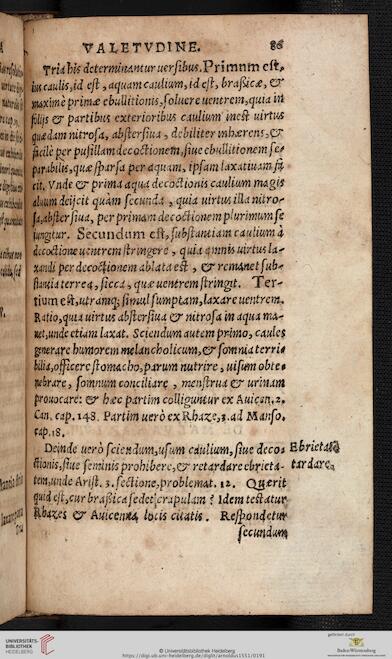 VALETVDINE. 86
Tria his determinantur versibus. Primum est,
ius caulis, id est, aquam caulium, id est, braßicæ, &
maximè primæ ebullitionis, soluere uentrem, quia in
folijs & partibus exterioribus caulium inest uirtus
quædam nitrosa, abstersiua, debiliter inhærens, &
facilè per pusillam decoctionem, siue ebullitionem se-
parabilis, quæ sparsa per aquam, ipsam laxatiuam fa
cit. Vnde & prima aqua decoctionis caulium magis
aluum deijcit quàm secunda, quia uirtus illa nitro-
sa, abstersiua, per primam decoctionem plurimum se
iungitur. Secundum est, substantiam caulium à
decoctione uentrem stringere, quia omnis uirtus la-
xandi per decoctionem ablata est, & remanet sub-
stantia terrea, sicca, quæ uentrem stringit. Ter-
tium est, utranq; simul sumptam, laxare uentrem.
Ratio, quia uirtus abstersiua & nitrosa in aqua ma-
net, unde etiam laxat. Sciendum autem primo, caules
generare humorem melancholicum, & somnia terri-
bilia, officere stomacho, parum nutrire, uisum obte-
nebrare, somnum conciliare, menstrua & urinam
prouocare: & hæc partim colliguntur ex Auicen. 2.
Can. cap. 148. Partim uerò ex Rhaze, 3. ad Manso.
cap. 18.
Deinde uerò sciendum, usum caulium, siue deco-
ctionis, siue seminis prohibere, & retardare ebrieta-
tem, unde Arist. 3. sectione, problemat. 12. Quærit
quid est, cur braßica sedet crapulam? Idem testatur
Rhazes & Auicenna locis citatis. Respondetur
secundum
Ebrietatē
tardare.
UNIVERSITÄTS-
BIBLIOTHEK
HEIDELBERG
© Universitätsbibliothek Heidelberg
https://digi.ub.uni-heidelberg.de/diglit/arnoldus1551/0191
gefördert durch
Baden-Württemberg